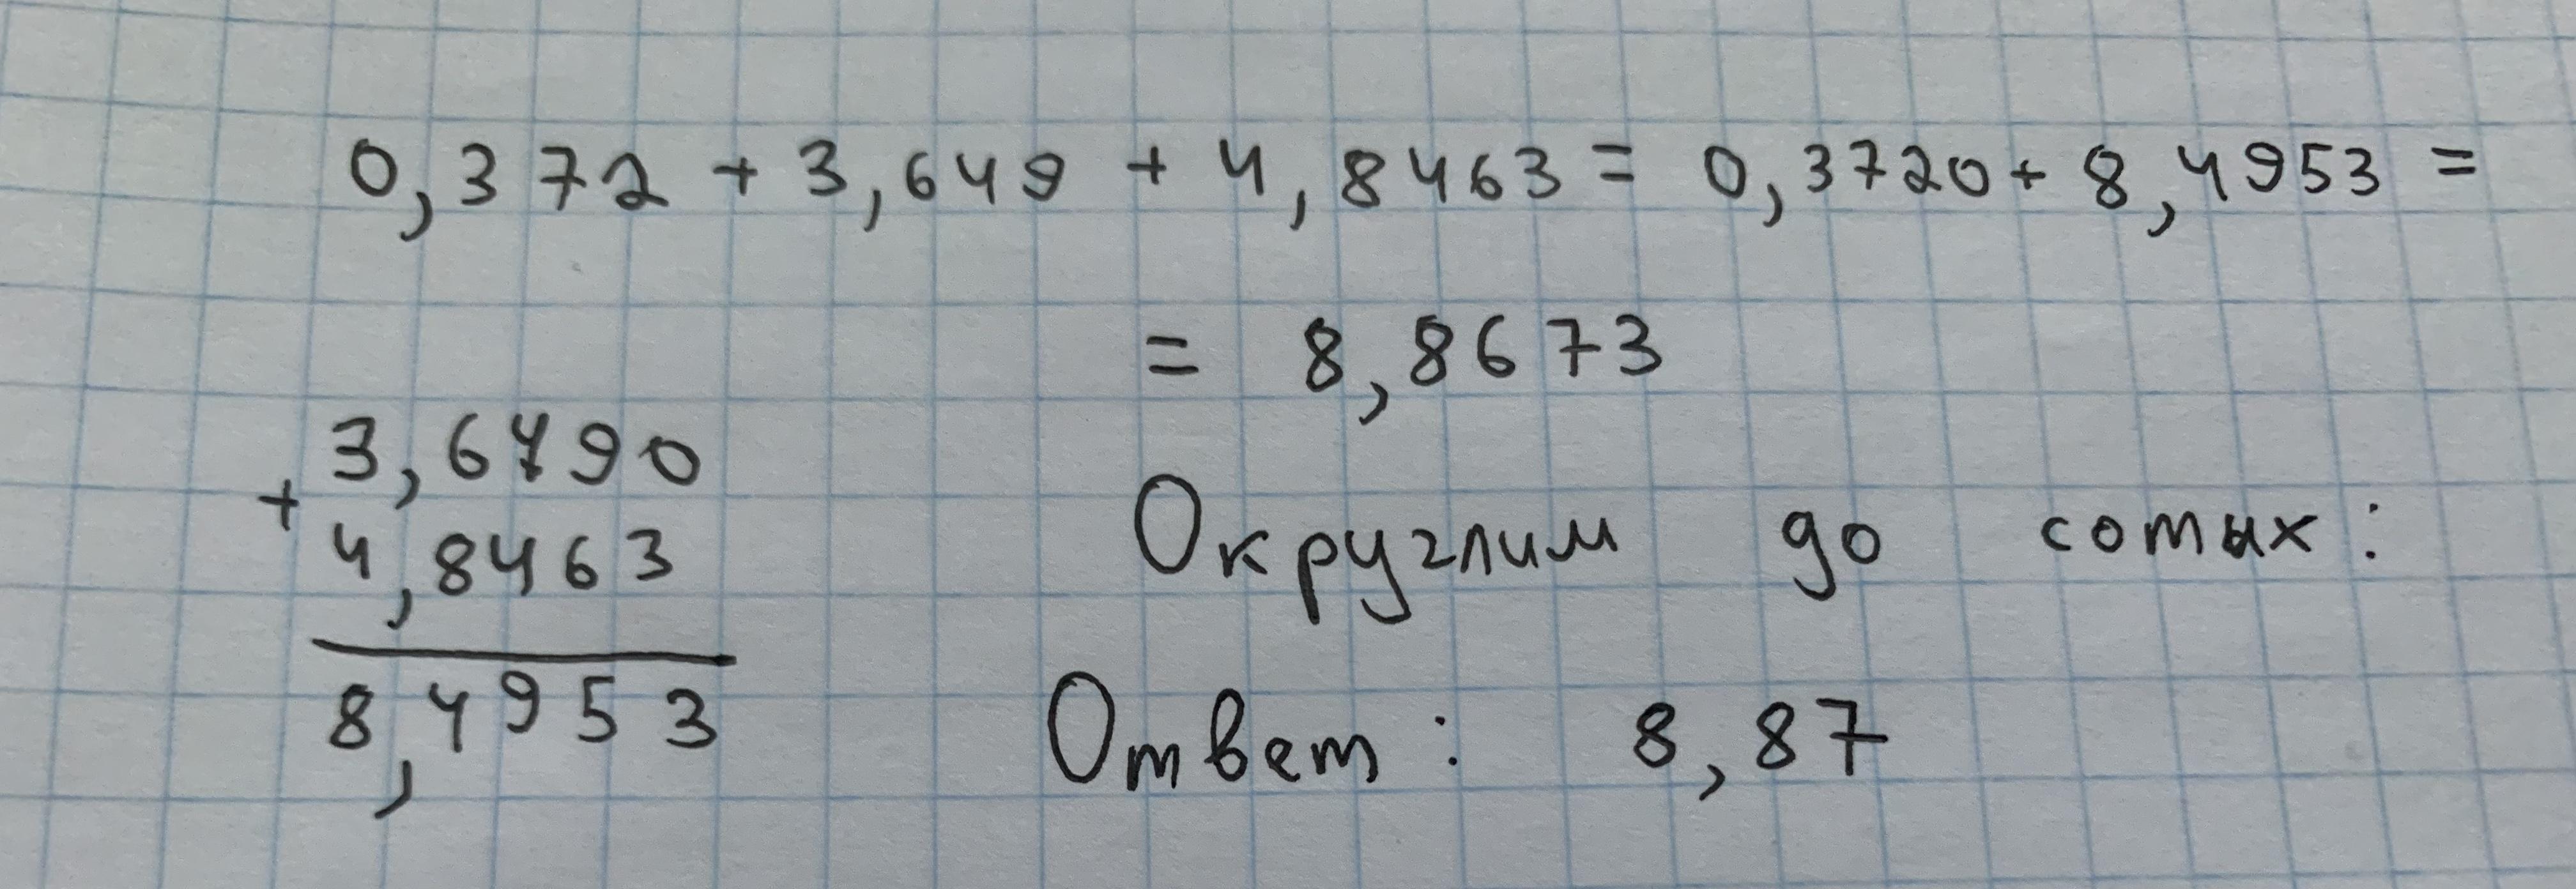 0,372 + 3,649 + 4,8463 = 0,3720 + 8,4953 =
= 8,8673
3,6490
+
4,8463
8,4953
Округлим до сотых:
Ответ: 8,87